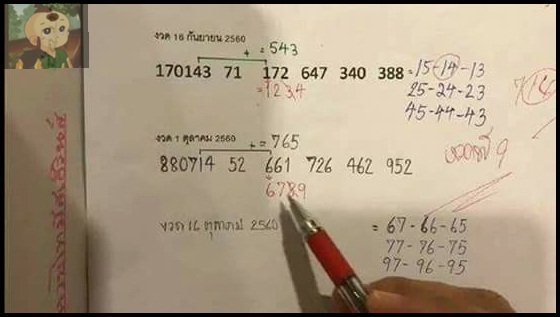 งวด 16 กันยายน 2560
+ = 543
170143 71 172 647 340 388 = 15-14-13
= 1234
25-24-23
45-44-43
งวด 1 ตุลาคม 2560 + = 765
880714 52 661 726 462 952
6789
งวด 16 ตุลาคม 2560
= 67-66-65
77-76-75
97-96-95